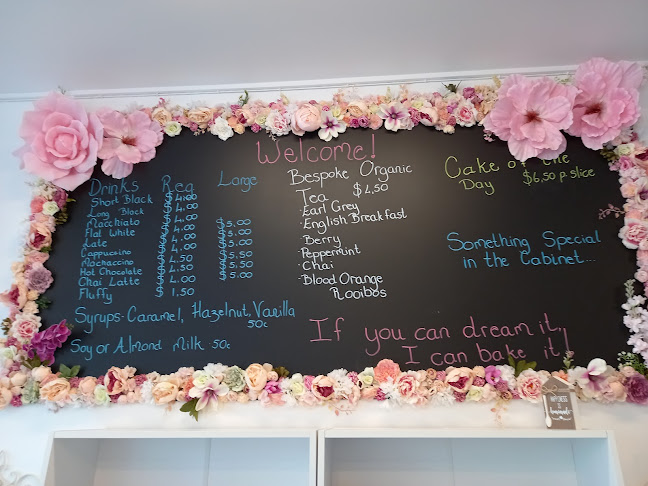 Welcome!
Drinks Reg Large
Short Black $4.00
Long Black $4.00
Macchiato $4.00
Flat White $4.00 $5.00
Late $4.00 $5.00
Cappuccino $4.00 $5.00
Mochaccino $4.50 $5.50
Hot Chocolate $4.50 $5.50
Chai Latte $4.00 $5.50
Fluffy $1.50
Syrups - Caramel, Hazelnut, Vanilla
50c
Soy or Almond Milk 50c
Bespoke Organic
Tea $4.50
· Earl Grey
· English Breakfast
· Berry
· Peppermint
· Chai
· Blood Orange
Rooibos
Cake of the
Day $6.50 p.slice
Something Special
in the Cabinet...
If you can dream it,
I can bake it!
HAPPINESS
is
homemade